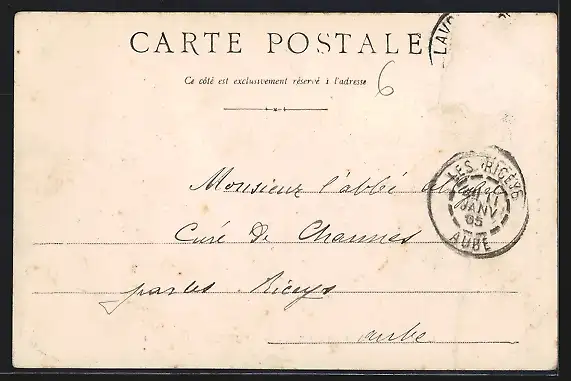 CARTE POSTALE
LAV
Ce côté est exclusivement réservé à l'adresse
6
Monsieur l'abbé
LES RICEYS
11
JANV
05
AUBE
Curé de Channes
par les Riceys
aube